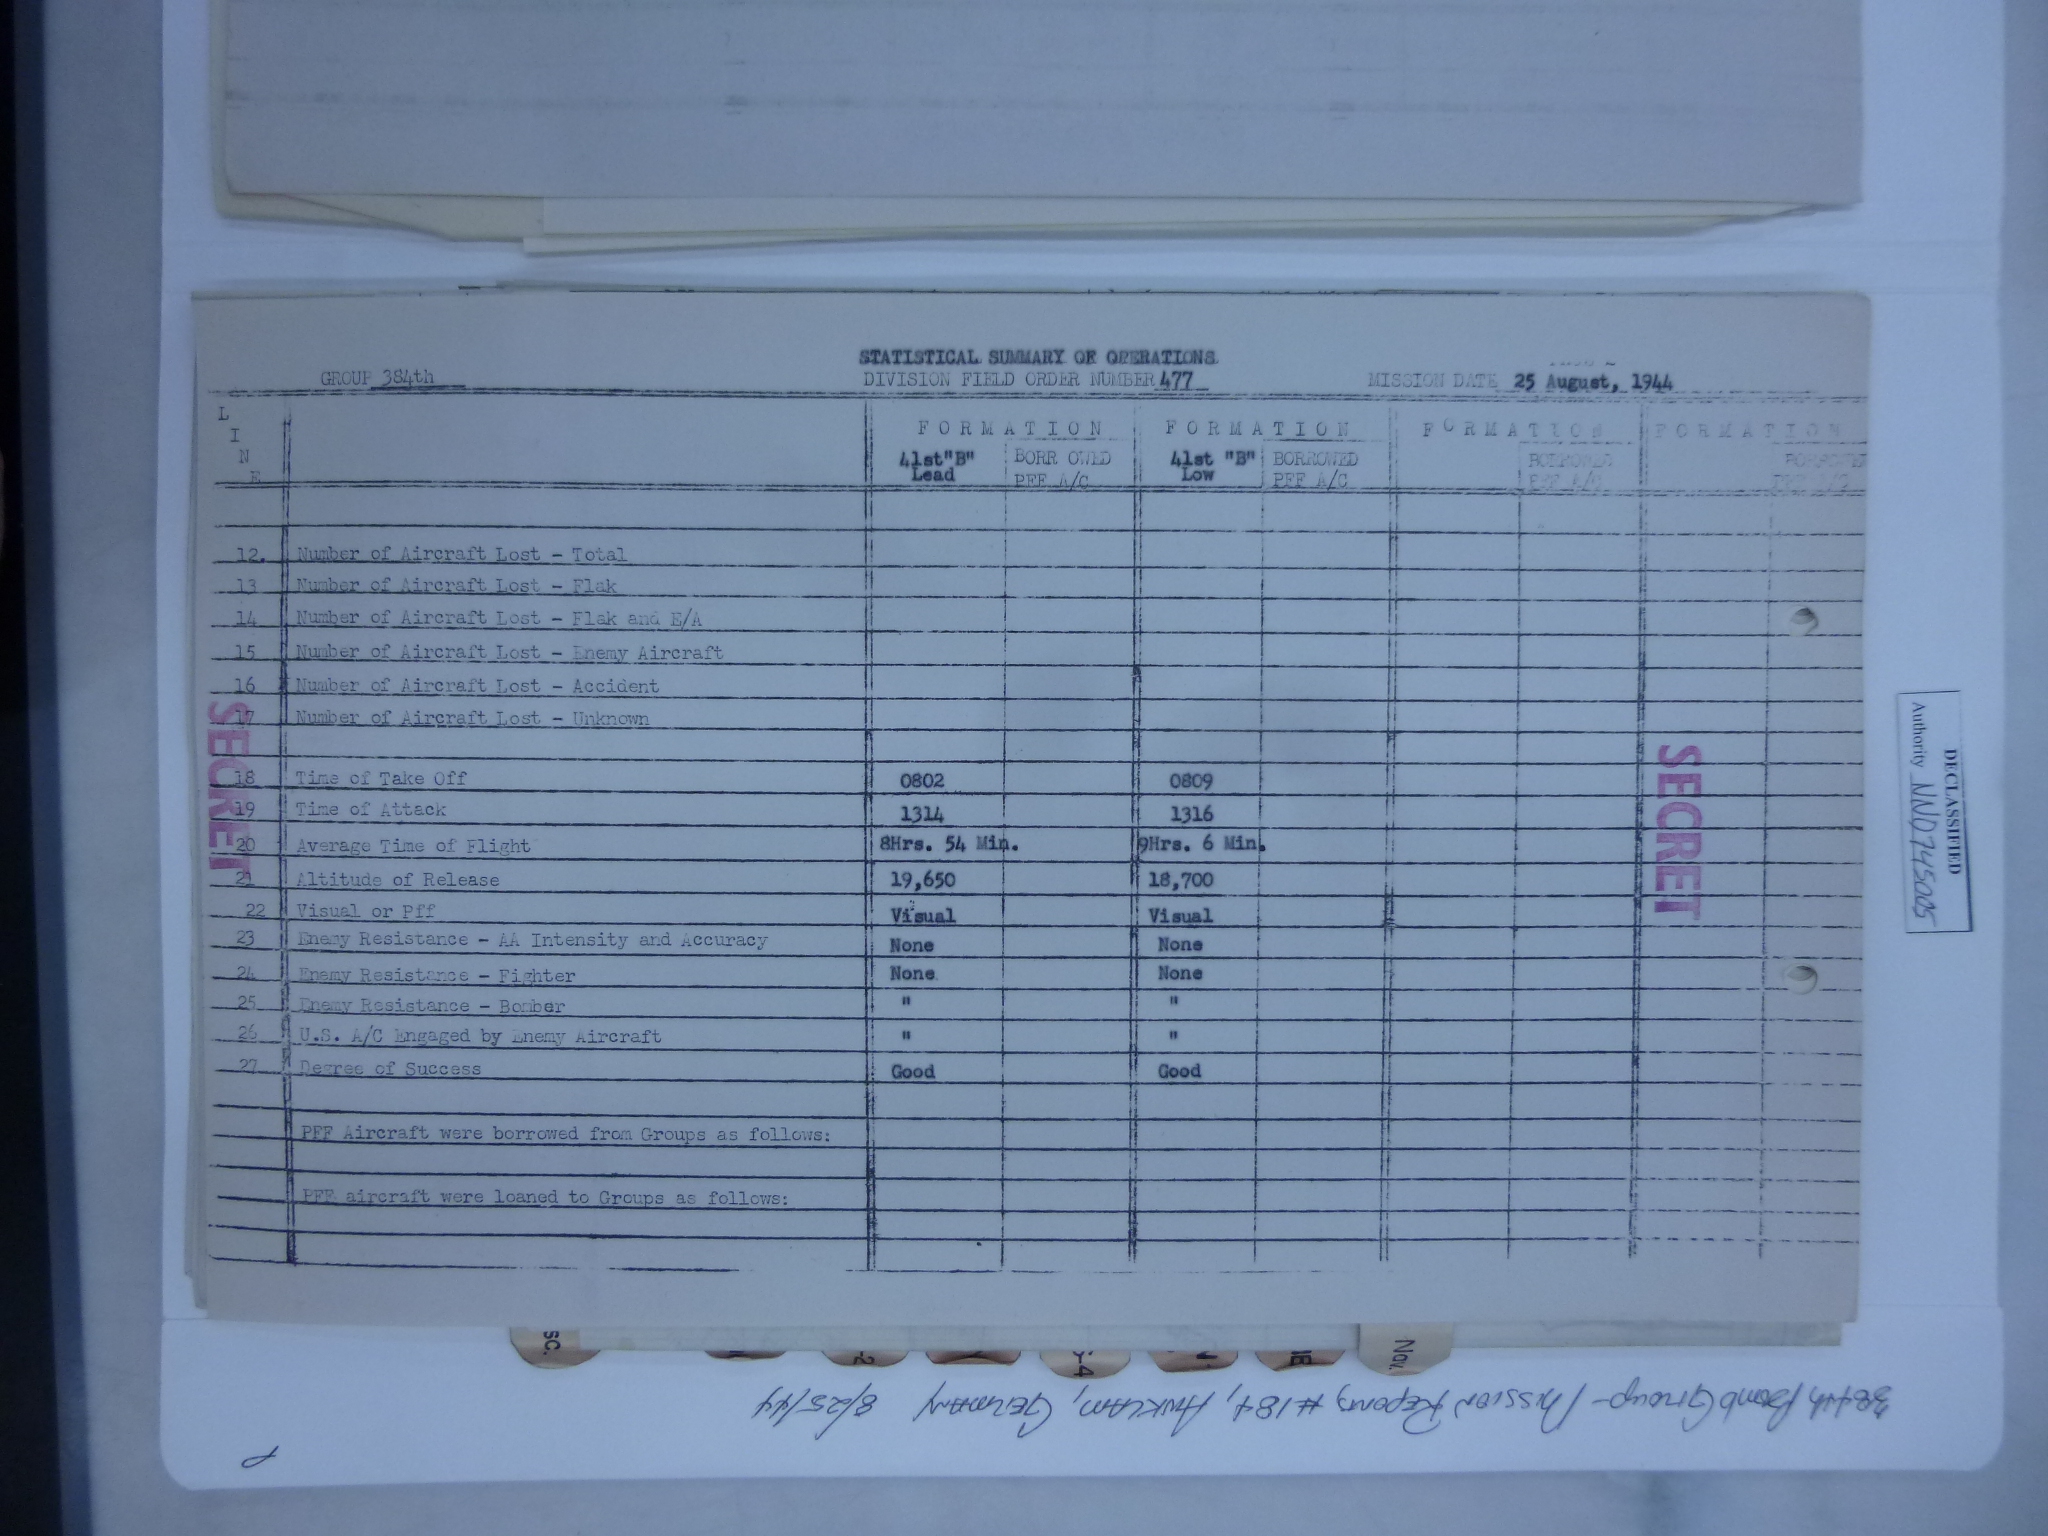 STATISTICAL SUMMARY OF OPERATIONS
GROUP 384th DIVISION FIELD ORDER NUMBER 477 MISSION DATE 25 August, 1944
LINE FORMATION FORMATION FORMATION FORMATION
41st "B" Lead BORROWED PFF A/C 41st "B" Low BORROWED PFF A/C BORROWED PFF A/C BORROWED PFF A/C
12. Number of Aircraft Lost - Total
13 Number of Aircraft Lost - Flak
14 Number of Aircraft Lost - Flak and E/A
15 Number of Aircraft Lost - Enemy Aircraft
16 Number of Aircraft Lost - Accident
17 Number of Aircraft Lost - Unknown
18 Time of Take Off 0802 0809
19 Time of Attack 1314 1316
20 Average Time of Flight 8Hrs. 54 Min. 9Hrs. 6 Min.
21 Altitude of Release 19,650 18,700
22 Visual or Pff Visual Visual
23 Enemy Resistance - AA Intensity and Accuracy None None
24 Enemy Resistance - Fighter None None
25 Enemy Resistance - Bomber " "
26 U.S. A/C Engaged by Enemy Aircraft " "
27 Degree of Success Good Good
PFF Aircraft were borrowed from Groups as follows:
PFF aircraft were loaned to Groups as follows:
SECRET
SECRET
DECLASSIFIED
Authority NND 745005
sc.
-2
Nov.
384th Bomb Group - Mission Reports #184, Anklam, Germany 8/25/44